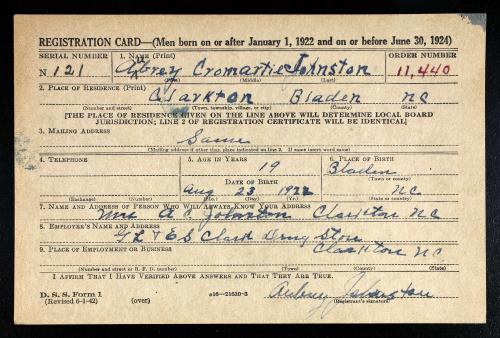 REGISTRATION CARD—(Men born on or after January 1, 1922 and on or before June 30, 1924)
SERIAL NUMBER 1. NAME (Print) ORDER NUMBER
N 121 Aubrey Cromartie Johnston 11,440
(First) (Middle) (Last)
2. PLACE OF RESIDENCE (Print)
Clarkton Bladen NC
(Number and street) (Town, township, village, or city) (County) (State)
[THE PLACE OF RESIDENCE GIVEN ON THE LINE ABOVE WILL DETERMINE LOCAL BOARD
JURISDICTION; LINE 2 OF REGISTRATION CERTIFICATE WILL BE IDENTICAL]
3. MAILING ADDRESS
Same
(Mailing address if other than place indicated on line 2. If same insert word same)
4. TELEPHONE 5. AGE IN YEARS 6. PLACE OF BIRTH
19 Bladen
DATE OF BIRTH (Town or county)
Aug 23 1922 NC
(Exchange) (Number) (Mo.) (Day) (Yr.) (State or country)
7. NAME AND ADDRESS OF PERSON WHO WILL ALWAYS KNOW YOUR ADDRESS
Mrs A.C. Johnston Clarkton NC
8. EMPLOYER'S NAME AND ADDRESS
&  E S Clark Drug Store
9. PLACE OF EMPLOYMENT OR BUSINESS
Clarkton NC
(Number and street or R. F. D. number) (Town) (County) (State)
I AFFIRM THAT I HAVE VERIFIED ABOVE ANSWERS AND THAT THEY ARE TRUE.
D. S. S. Form 1
(Revised 6-1-42) (over) 16—21630-2 Aubrey Johnston
(Registrant's signature)